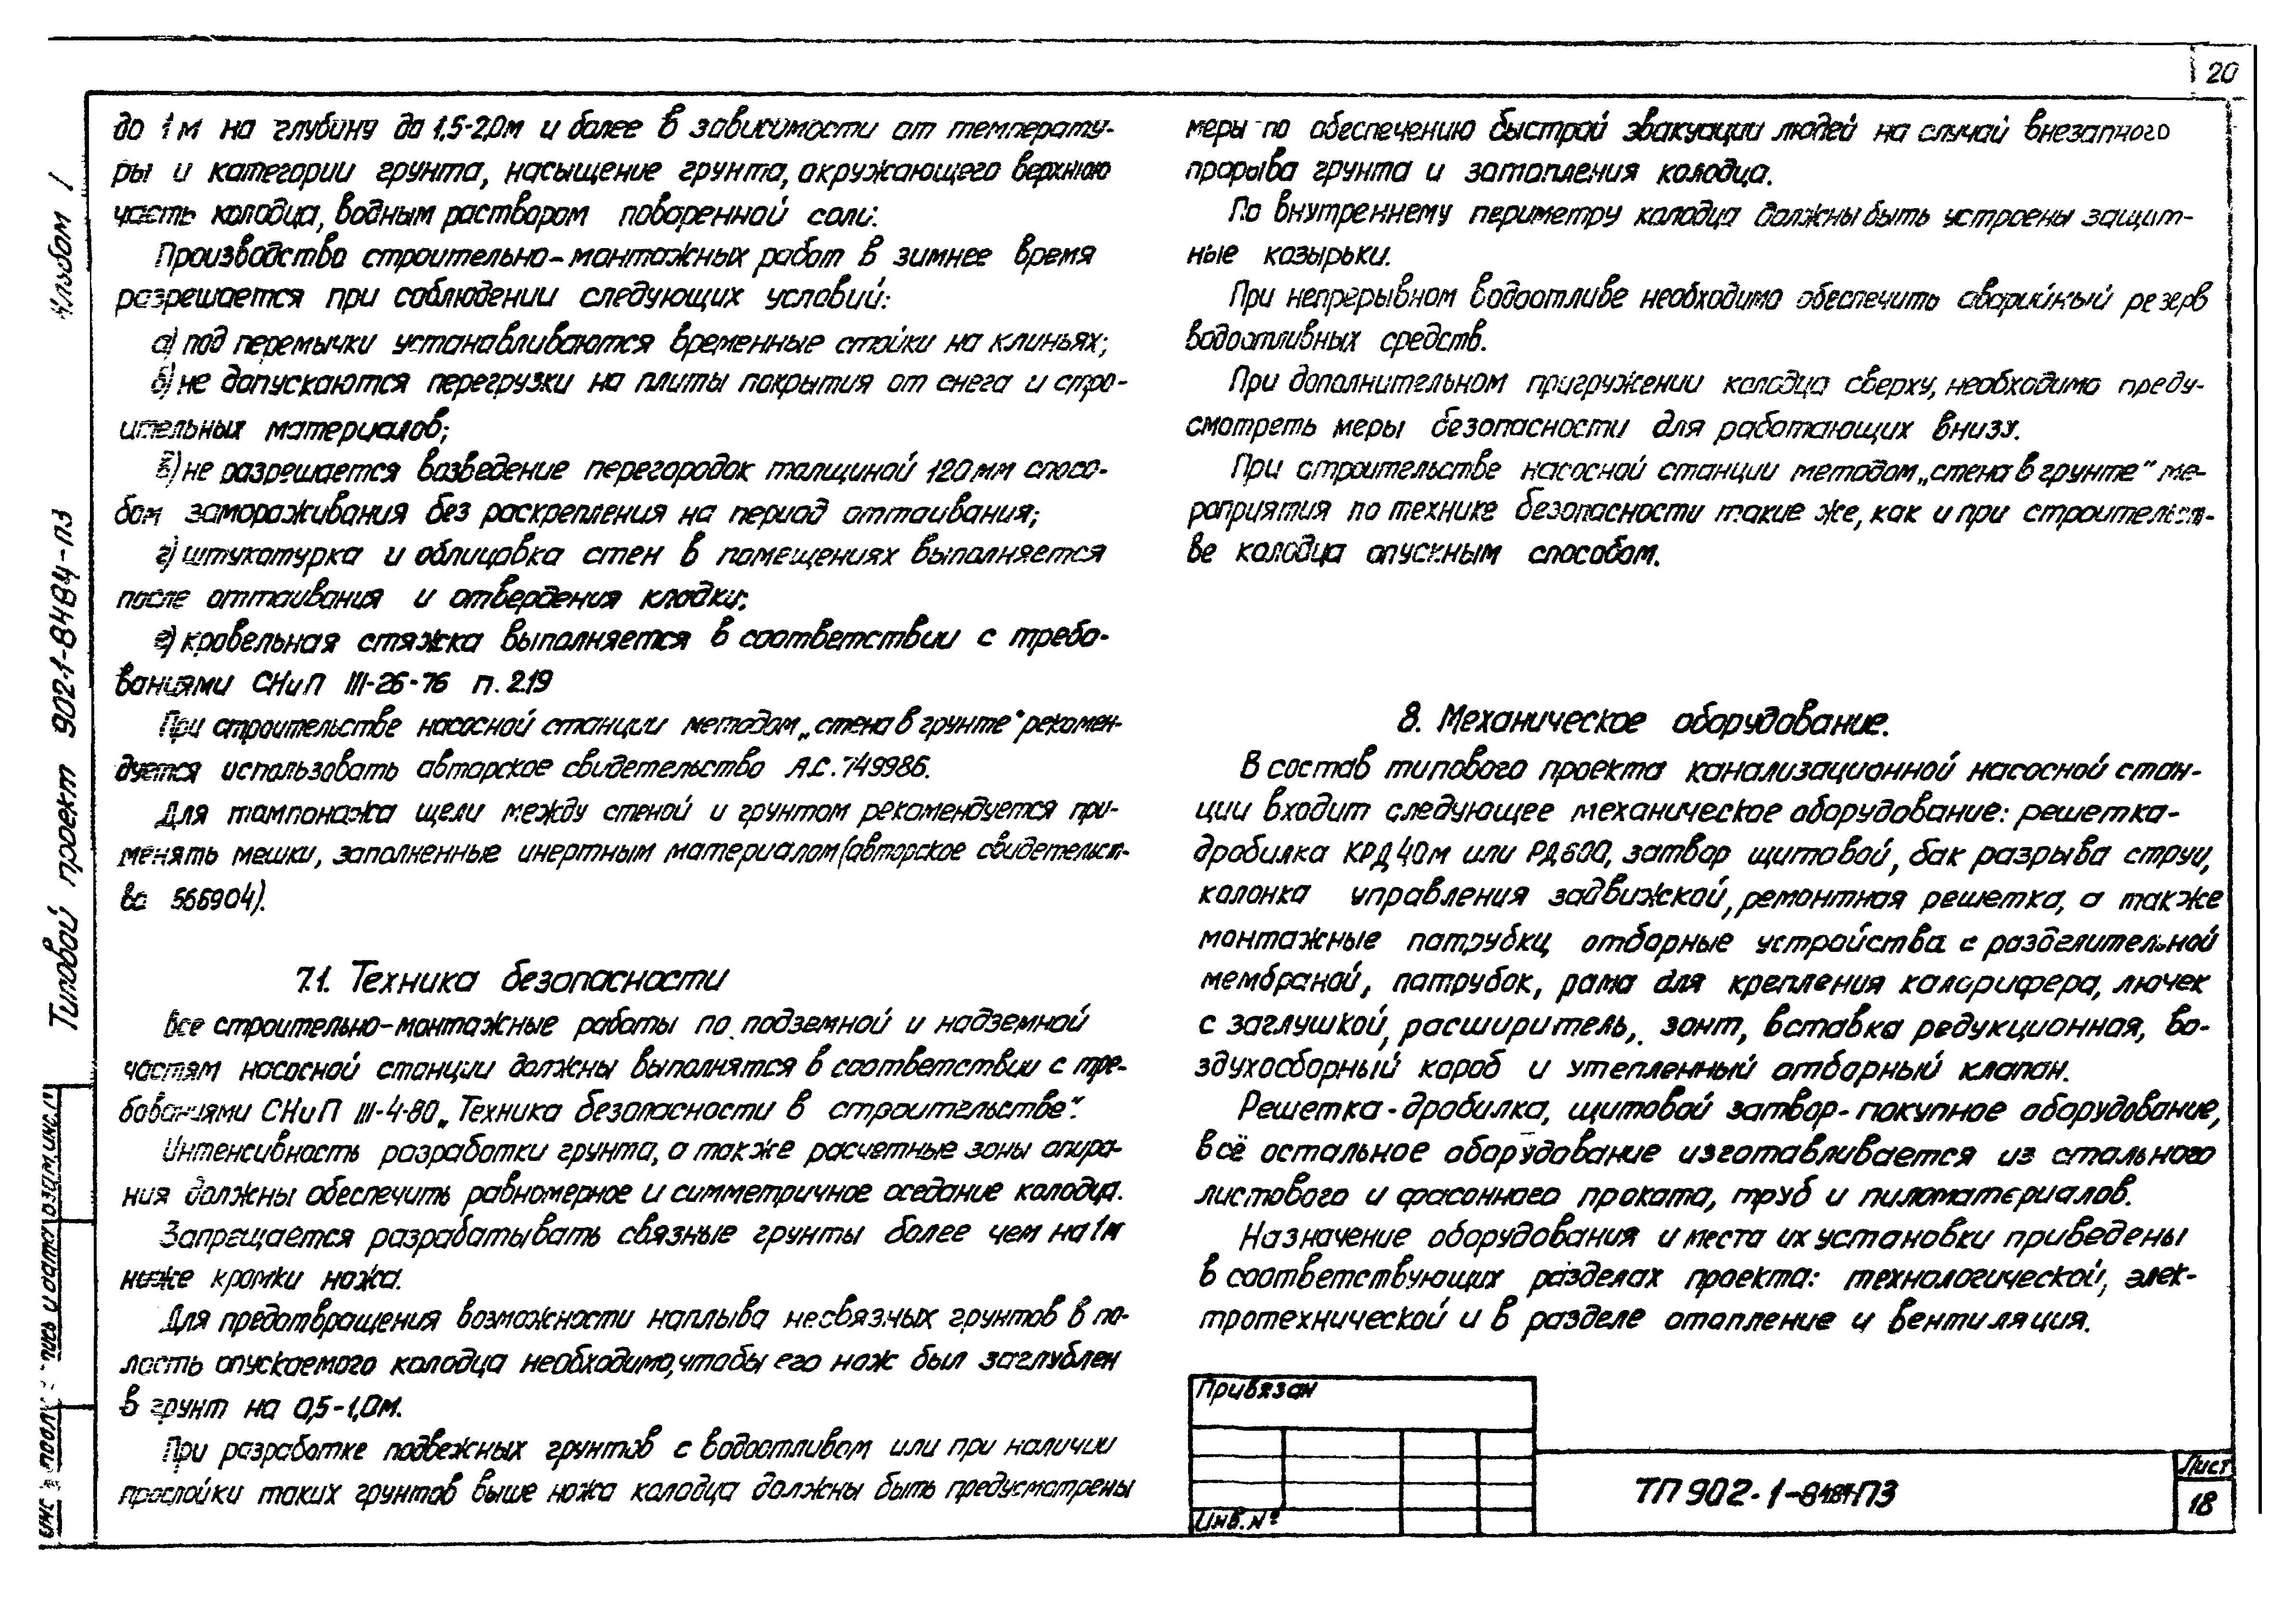 20
до 1м на глубину до 1,5-2,0м и более в зависимости от температу-
ры и категории грунта, насыщение грунта, окружающего верхнюю
часть колодца, водным раствором поваренной соли.
Производство строительно-монтажных работ в зимнее время
разрешается при соблюдении следующих условий:
а) под перемычки устанавливаются временные стойки на клиньях;
б) не допускаются перегрузки на плиты покрытия от снега и стро-
ительных материалов;
в) не разрешается возведение перегородок толщиной 120мм спосо-
бом замораживания без раскрепления на период оттаивания;
г) штукатурка и облицовка стен в помещениях выполняется
после оттаивания и отвердения кладки;
е) кровельная стяжка выполняется в соответствии с требо-
ваниями СНиП III-26-76 п. 2.19
При строительстве насосной станции методом „стена в грунте" рекомен-
дуется использовать авторское свидетельство А.С. 749986.
Для тампонажа щели между стеной и грунтом рекомендуется при-
менять мешки, заполненные инертным материалом (авторское свидетельст-
во 566904).
7.1. Техника безопасности
Все строительно-монтажные работы по подземной и надземной
частям насосной станции должны выполнятся в соответствии с тре-
бованиями СНиП III-4-80 „Техника безопасности в строительстве".
Интенсивность разработки грунта, а также расчетные зоны опира-
ния должны обеспечить равномерное и симметричное оседание колодца.
Запрещается разрабатывать связные грунты более чем на 1м
ниже кромки ножа.
Для предотвращения возможности наплыва несвязных грунтов в по-
лость опускаемого колодца необходимо, чтобы его нож был заглублен
в грунт на 0,5-1,0м.
При разработке подвежных грунтов с водоотливом или при наличии
прослойки таких грунтов выше ножа колодца должны быть предусмотрены
меры по обеспечению быстрой эвакуации людей на случай внезапного
прорыва грунта и затопления колодца.
По внутреннему периметру колодца должны быть устроены защит-
ные козырьки.
При непрерывном водоотливе необходимо обеспечить аварийный резерв
водоотливных средств.
При дополнительном пригружении колодца сверху, необходимо преду-
смотреть меры безопасности для работающих внизу.
При строительстве насосной станции методом „стена в грунте" ме-
роприятия по технике безопасности такие же, как и при строительст-
ве колодца опускным способом.
8. Механическое оборудование.
В состав типового проекта канализационной насосной стан-
ции входит следующее механическое оборудование: решетка-
дробилка КРД 40м или РД 600, затвор щитовой, бак разрыва струи,
колонка управления задвижкой, ремонтная решетка, а также
монтажные патрубки, отборные устройства с разделительной
мембраной, патрубок, рама для крепления калорифера, лючек
с заглушкой, расширитель, зонт, вставка редукционная, во-
здухосборный короб и утепленный отборный клапан.
Решетка-дробилка, щитовой затвор-покупное оборудование,
всё остальное оборудование изготавливается из стального
листового и фасонного проката, труб и пиломатериалов.
Назначение оборудования и места их установки приведены
в соответствующих разделах проекта: технологической, элек-
тротехнической и в разделе отопление и вентиляция.
Привязан
Инв. №
ТП 902-1-84.84-ПЗ
Лист
18
Альбом 1
Типовой проект 902-1-84.84-ПЗ